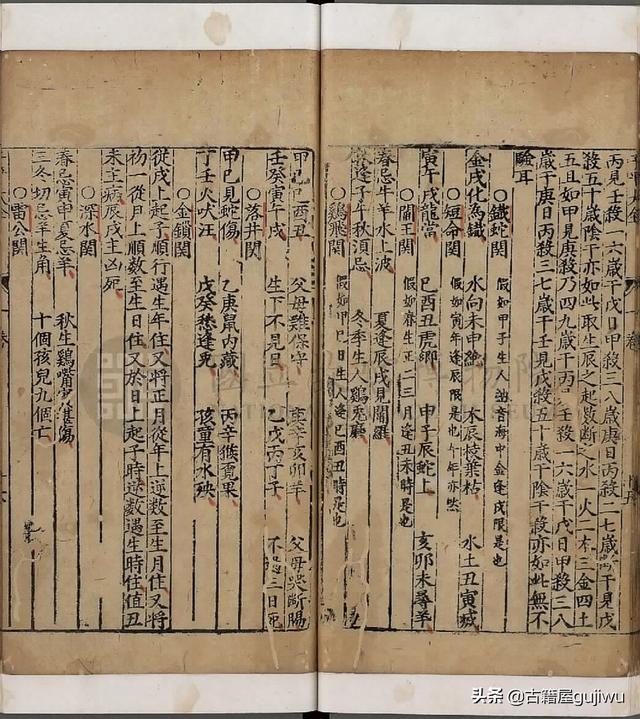 丙見壬殺一六歲干戊日甲殺三八歲庚日丙殺二七歲干見戊
殺五十歲陰干亦如此取生辰之起數斷之水一火二木三金四土
五且如甲見庚殺乃四九歲干丙日壬殺一六歲干戊日甲殺三八
歲干庚日丙殺三七歲干壬見戊殺五十歲干陰干殺亦如此無不
驗耳
○鐵蛇關 假如甲子生人納音海中金逢戌限是也
金戌化為鐵 水向未申絕 木辰枝葉枯 水土丑寅城
○短命關 假如寅年逢辰限是也午年亦然
寅午戌龍當 巳酉丑虎鄉 申子辰蛇上 亥卯未尋羊
○閻王關 假如春生正二三月逢丑未時是也
春忌牛羊水上波 夏逢辰戌見閻羅
逢子午秋須忌 冬季生人雞兔
○鷄飛關 假如甲己日生人逢巳酉丑時是也
甲己巳酉丑 父母難保守 庚辛亥卯羊 父母哭斷腸
壬癸寅午戌 生下不見日 乙戊丙丁子 不過三日死
○落井關
甲己見蛇傷 乙庚鼠內藏 丙辛猴覓果
丁壬犬吠汪 戊癸愁逢兔 孩童有水殃
○金鎖關
從戌上起子順行遇生年住又將正月從年上逆數至生月住又將
初一從月上順數至生日住又於日上起子時逆數遇生時住值丑
未主病辰戌主凶死
○深水關
春忌寅申夏忌羊 秋生鷄嘴實堪傷
三冬切忌羊生角 十個孩兒九個亡
○雷公關
头条 @古籍屋gujiwu